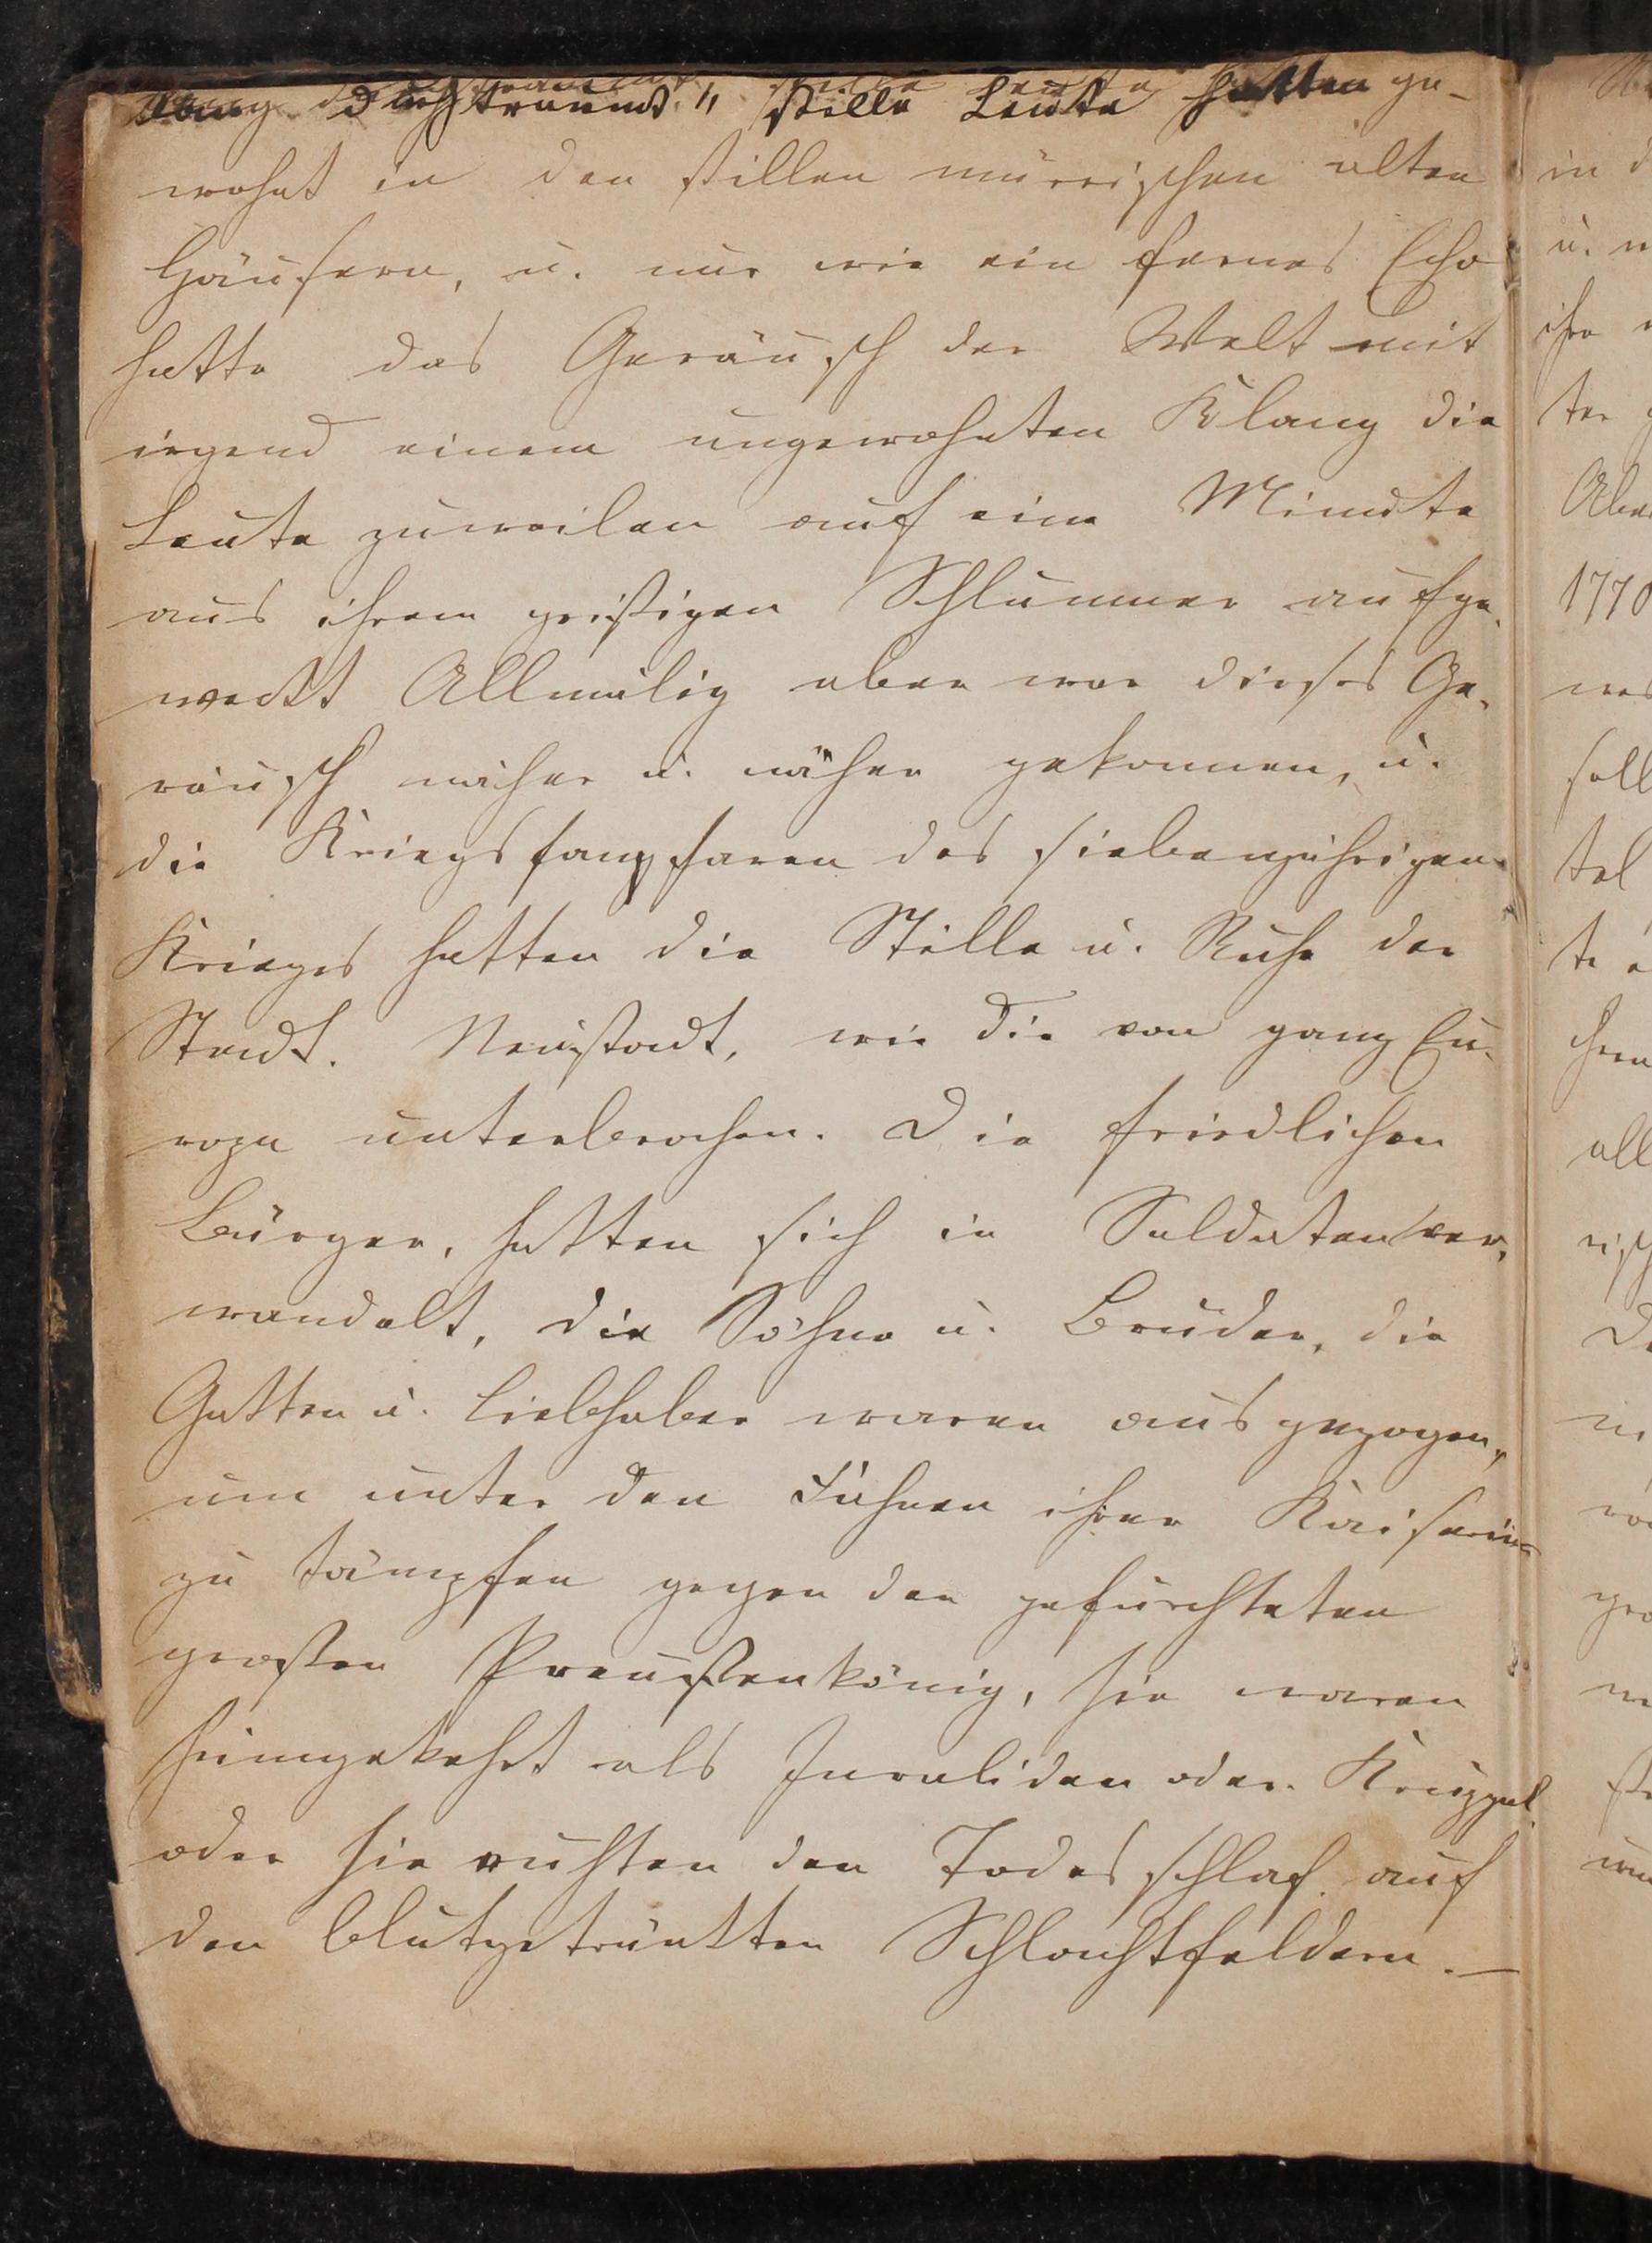 lang durchträumt, stille Leute hatten ge-
wohnt in den stillen mürrischen alten
Häusern, u. nur wie ein fernes Echo
hatte das Geräusch der Welt mit
irgend einem ungewohnten Klang die
Leute zuweilen auf eine Minute
aus ihrem geistigen Schlummer aufge-
weckt Allmälig aber war dieses Ge-
räusch näher u. näher gekommen, u.
die Kriegsfanpfaren des siebenjährigen
Krieges hatten die Stille u. Ruhe der
Stadt. Neustadt, wie die von ganz Eu-
ropa unterbrochen. Die friedlichen
Bürger, hatten sich in Soldaten ver-
wandelt, die Söhne u. Brüder, die
Gatten u. Liebhaber waren ausgezogen,
um unter den Fahnen ihrer Kaiserin
zu kämpfen gegen den gefürchteten
großen Preußenkönig, sie waren
heimgekehrt als Invaliden oder Krüppel
oder sie ruhten den Todesschlaf auf
den blutgetränkten Schlachtfeldern. —
in
u.
ihre
ter
Aber
1770
soll
tel
te
all